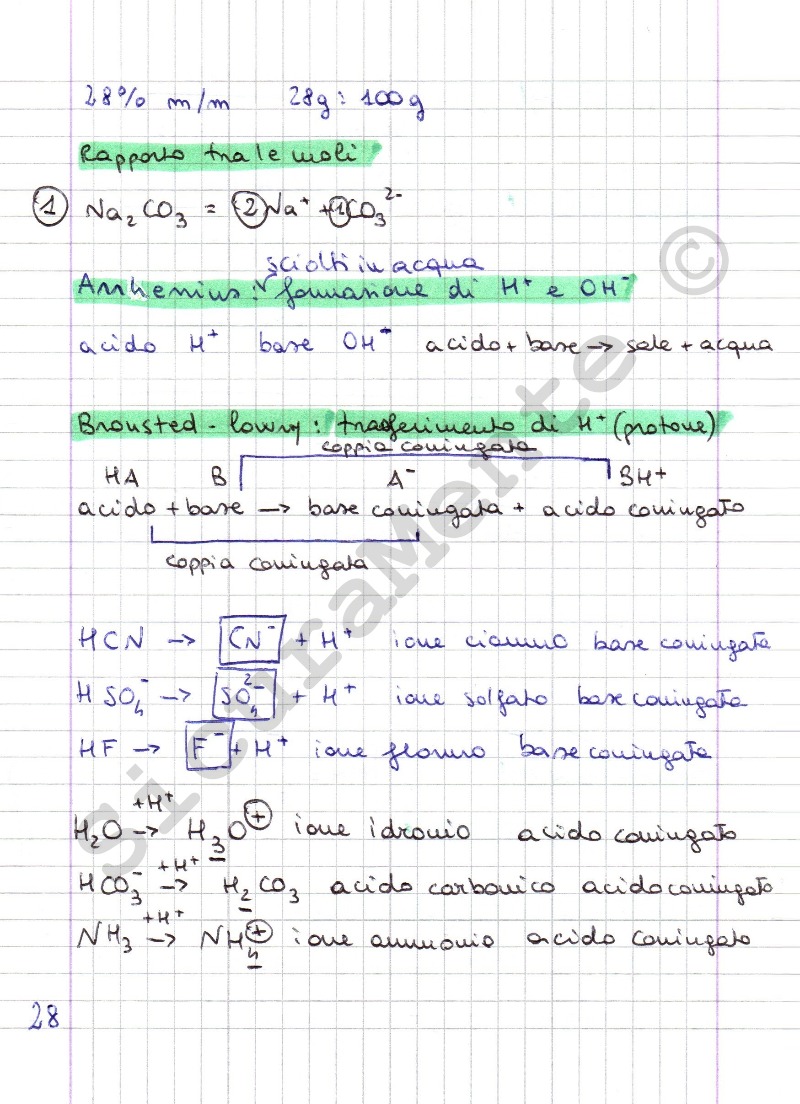 28% m/m 28g : 100g
Rapporto tra le moli
1 Na₂CO₃ = 2Na⁺ + 1CO₃²⁻
sciolti in acqua
Arrhenius: formazione di H⁺ e OH⁻
acido H⁺ base OH⁻ acido + base → sale + acqua
Bronsted - lowry: trasferimento di H⁺ (protone)
coppia coniugata
HA B A⁻ BH⁺
acido + base → base coniugata + acido coniugato
coppia coniugata
HCN → CN⁻ + H⁺ ione cianuro base coniugata
HSO₄⁻ → SO₄²⁻ + H⁺ ione solfato base coniugata
HF → F⁻ + H⁺ ione floruro base coniugata
+H⁺
H₂O → H₃O⁺ ione idronio acido coniugato
+H⁺
HCO₃⁻ → H₂CO₃ acido carbonico acido coniugato
+H⁺
NH₃ → NH₄⁺ ione ammonio acido coniugato
28
SicuraMente ©